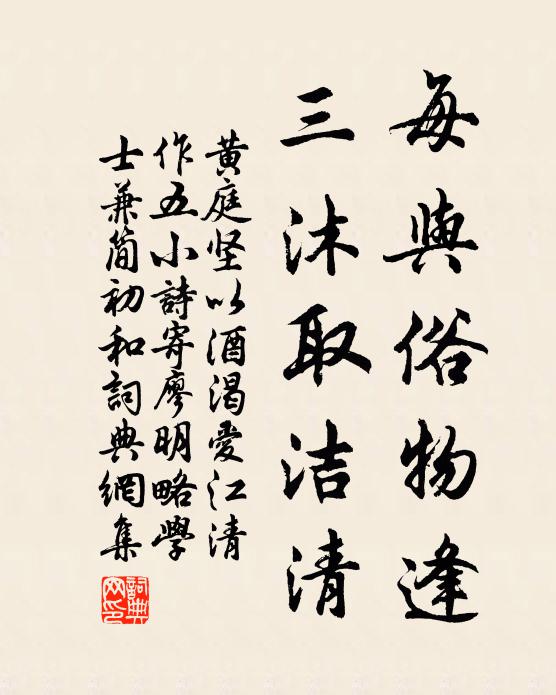 每與俗物逢
三沐取洁清
黄庭坚以酒渴愛江清
作五小詩寄廖明略學
士兼简初和詞典網集
詞典网印